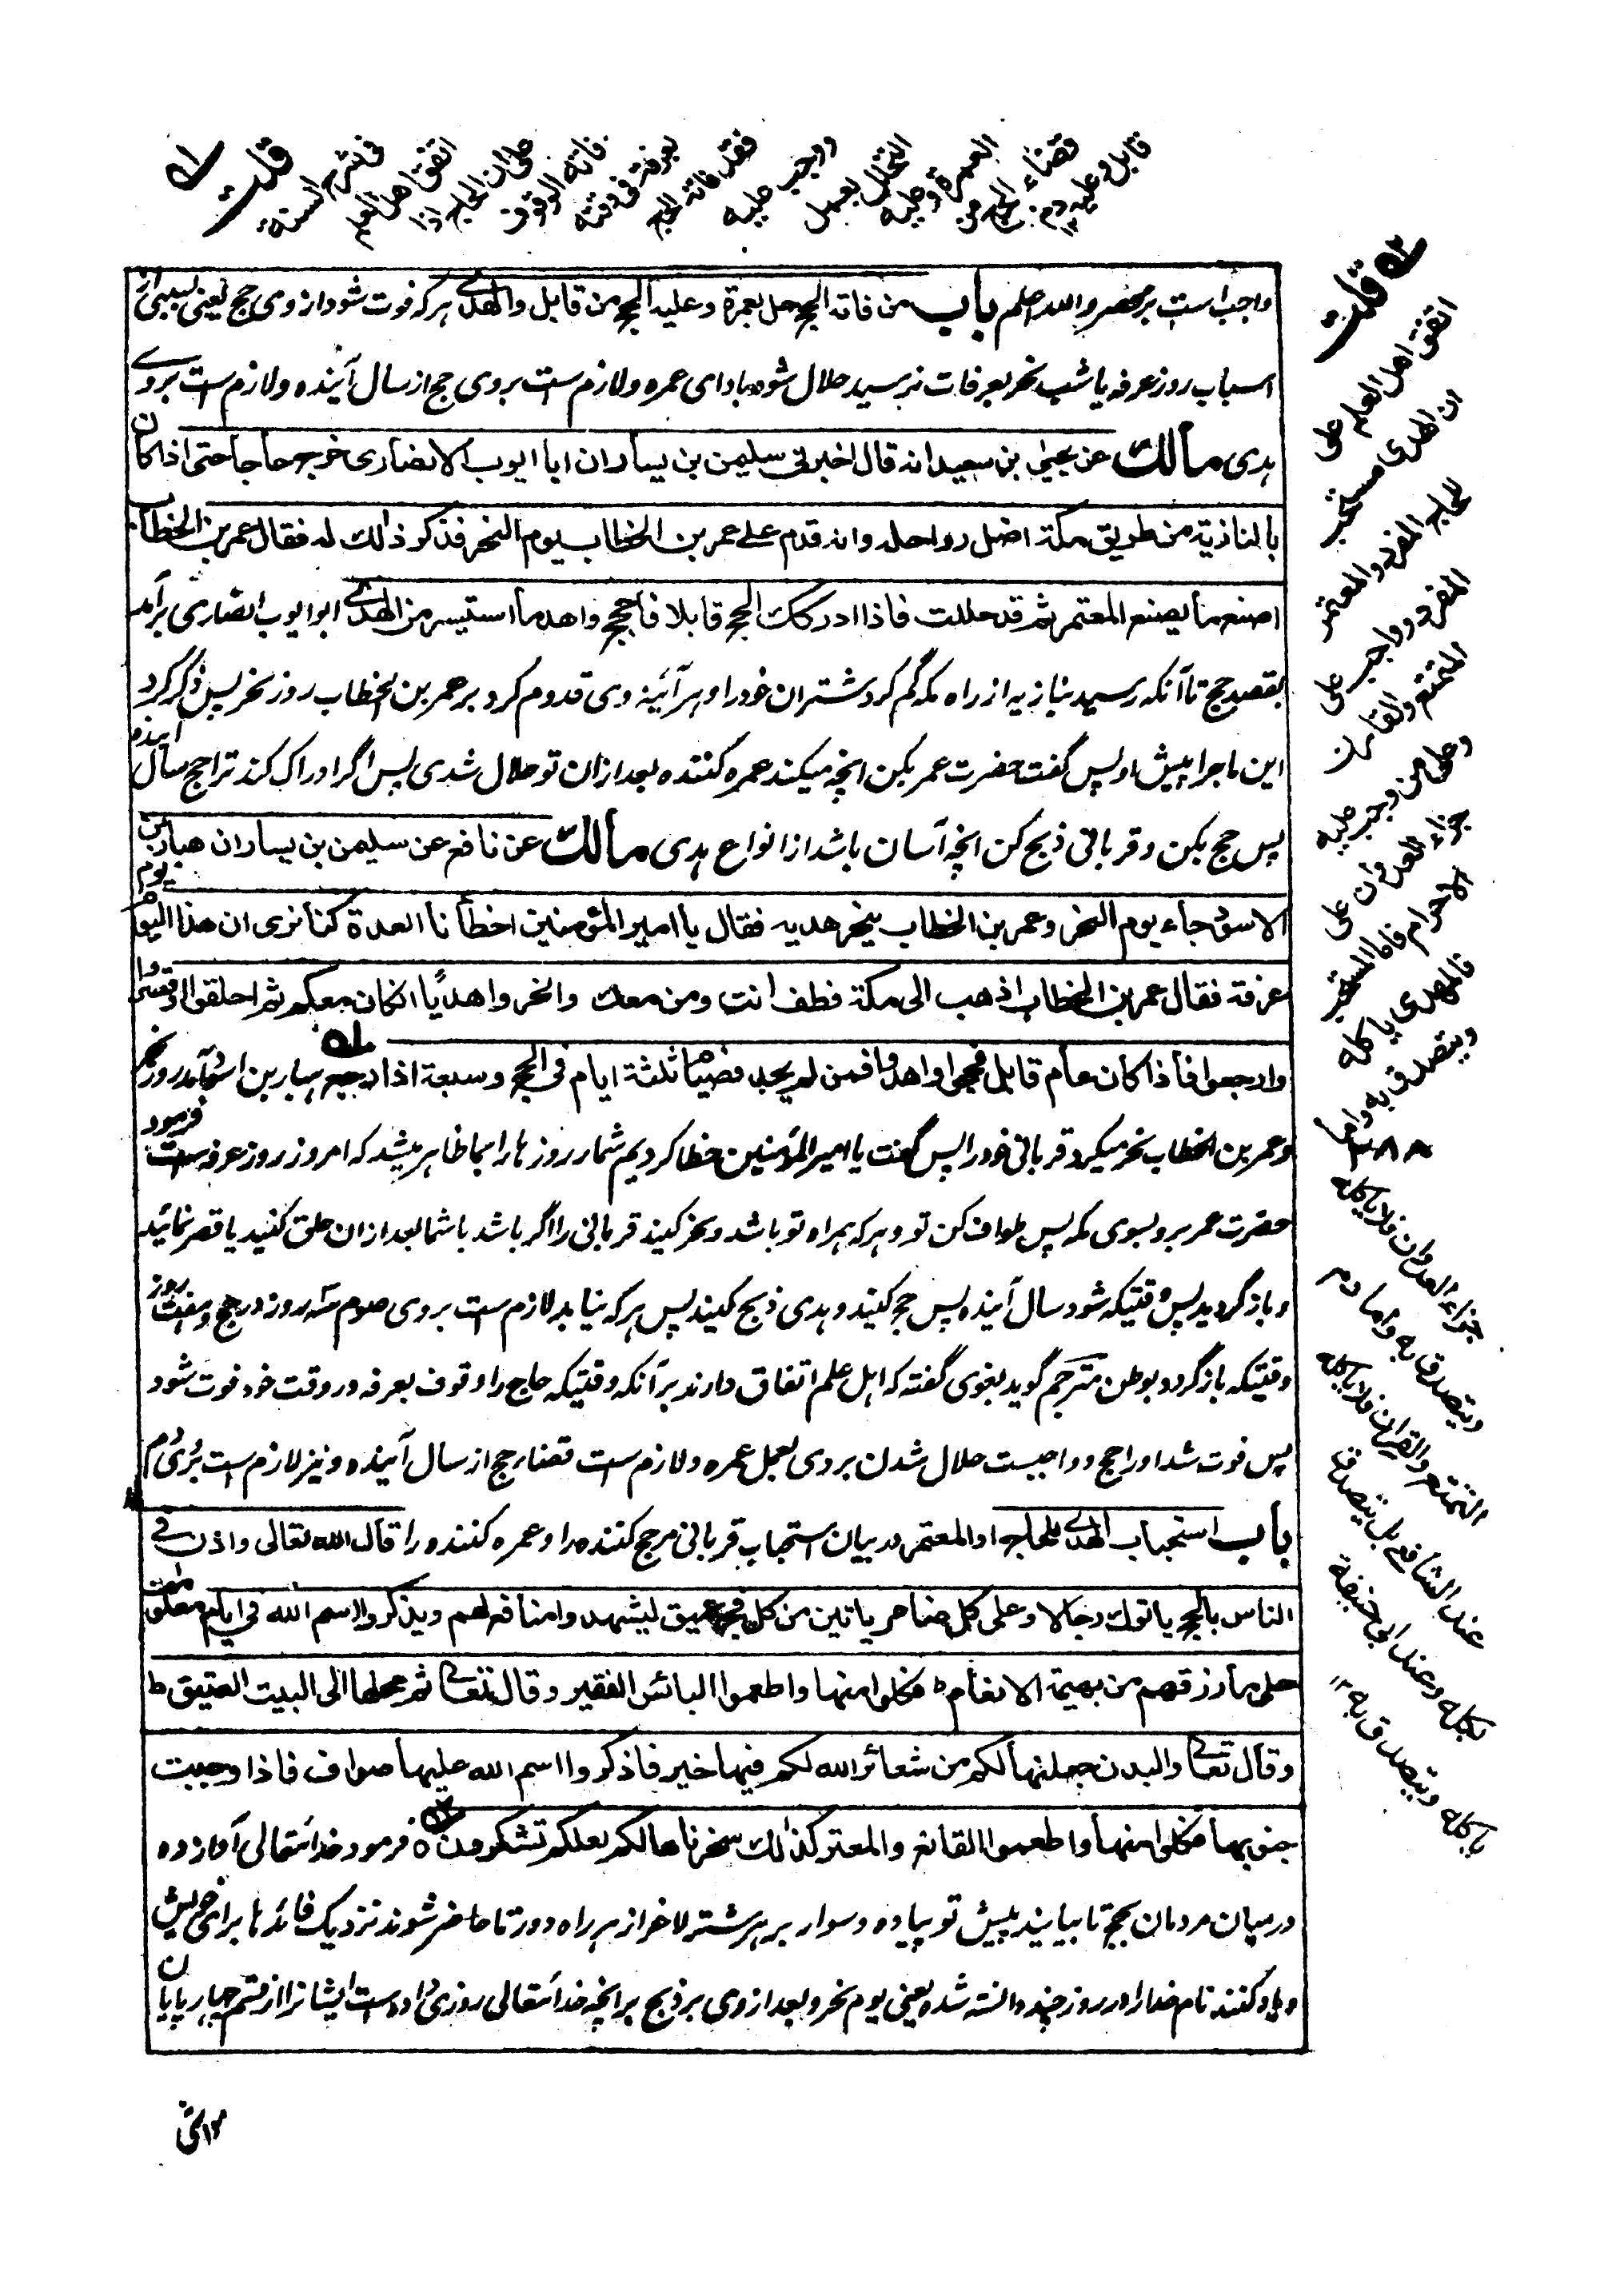 قلت
فى شرح السنة
اتفق اهل العلم
على ان الحاج اذا
فاته الوقوف
بعرفة فى وقته
فقد فاته الحج
ووجب عليه
التحلل بعمل
العمرة وعليه
قضاء الحج من
قابل وعليه دم ١٢
واجب است بر محصر والله اعلم باب من فاته الحج حل بعمرة وعليه الحج من قابل والهدى هر که فوت شود از وى حج یعنى بسببى از
اسباب روز عرفه یا شب نحر بعرفات نرسید حلال شود بادای عمره ولازم ست بروى حج از سال آینده ولازم ست بروے
هدى مالك عن يحيى بن سعيد انه قال اخبرنى سليمن بن يسار ان ابا ايوب الانصارى خرج حاجا حتى اذا كان
بالنازية من طريق مكة اضل رواحله وانه قدم على عمر بن الخطاب يوم النحر فذكر ذلك له فقال عمر بن الخطاب
اصنع ما يصنع المعتمر ثم قد حللت فاذا ادركك الحج قابلا فاحجج واهد ما استيسر من الهدى ابو ایوب انصارى برآمد
بقصد حج تا آنکه رسید بنازیه از راه مکه گم کرد شتران خود را و هر آئینه وى قدوم کرد بر عمر بن الخطاب روز نحر پس ذکر کرد
این ماجرا پیش او پس گفت حضرت عمر بکن انچه میکند عمره کننده بعد ازان تو حلال شدى پس اگر ادراک کند ترا حج سال آینده
پس حج بکن و قربانى ذبح کن انچه آسان باشد از انواع هدى مالك عن نافع عن سليمن بن يسار ان هبار بن
الاسود جاء يوم النحر وعمر بن الخطاب ينحر هديه فقال يا امير المؤمنين اخطأنا العدة كنا نرى ان هذا اليوم يوم
عرفة فقال عمر بن الخطاب اذهب الى مكة فطف انت ومن معك وانحروا هديا ان كان معكم ثم احلقوا او قصروا
وارجعوا فاذا كان عام قابل فحجوا واهدوا فمن لم يجد فصيام ثلثة ايام فى الحج وسبعة اذا رجع هبار بن اسود آمد روز نحر
و عمر بن الخطاب نحر میکرد قربانى خود را پس گفت یا امیر المؤمنین خطا کردیم شمار روز ها را بما ظاهر میشد که امروز روز عرفه است فرمود
حضرت عمر برو بسوى مکه پس طواف کن تو و هر که همراه تو باشد و نحر کنید قربانى را اگر باشد با شما بعد ازان حلق کنید یا قصر نمائید
و باز گردید پس وقتیکه شود سال آینده پس حج کنید و هدى ذبح کنید پس هر که نیابد لازم ست بروى صوم سه روز در حج و هفت روز
وقتیکه باز گردد بوطن مترجم گوید بغوى گفته که اهل علم اتفاق دارند بر آنکه وقتیکه حاج را وقوف بعرفه در وقت خود فوت شود
پس فوت شد او را حج و واجبست حلال شدن بروى بعمل عمره ولازم ست قضاء حج از سال آینده و نیز لازم ست بروى دم
باب استحباب الهدى للحاج او المعتمر در بیان استحباب قربانى مر حج کننده را و عمره کننده را قال الله تعالى واذن فى
الناس بالحج ياتوك رجالا وعلى كل ضامر ياتين من كل فج عميق ليشهدوا منافع لهم ويذكروا اسم الله فى ايام معلومات
على ما رزقهم من بهيمة الانعام ط فكلوا منها واطعموا البائس الفقير وقال تعالى ثم محلها الى البيت العتيق ط
وقال تعالى والبدن جعلنها لكم من شعائر الله لكم فيها خير فاذكروا اسم الله عليها صواف فاذا وجبت
جنوبها فكلوا منها واطعموا القانع والمعتر كذلك سخرناها لكم لعلكم تشكرون ٥ فرمود خدا تعالى آواز ده
درمیان مردمان بحج تا بیایند پیش تو پیاده و سوار بر هر شتر لاغر از هر راه دور تا حاضر شوند نزدیک فائدها براى خویش
و یاد کنند نام خدا را در روز چند دانسته شده یعنى یوم نحر و بعد از وى بر ذبح برانچه خدا تعالى روزى داده ست ایشانرا از قسم چهار پایان
قلت
اتفق اهل العلم على
ان الهدى مستحب
للحاج المفرد والمعتمر
المفرد وواجب على
المتمتع والقارن
وعلى من وجب عليه
جزاء العدوان على
الاحرام فاما المستحب
فالمهدى ياكله
ويتصدق به واما
٣٨٨
جزاء العدوان فلا ياكله
ويتصدق به واما دم
التمتع والقران فلا ياكله
عند الشافعى بل يتصدق
بكله وعند ابى حنيفة
ياكله ويتصدق به ١٢